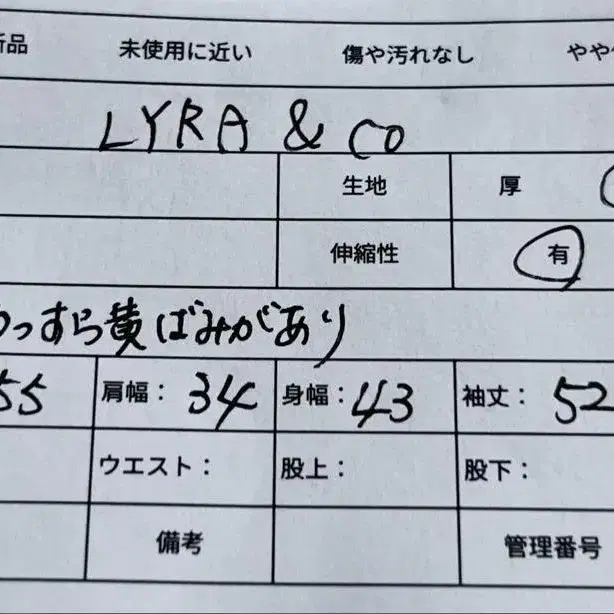 新品 未使用に近い 傷や汚れなし やや
LYRA & CO
生地 厚
伸縮性 有
うっすら黄ばみがあり
55 肩幅: 34 身幅: 43 袖丈: 52
ウエスト: 股上: 股下:
備考 管理番号